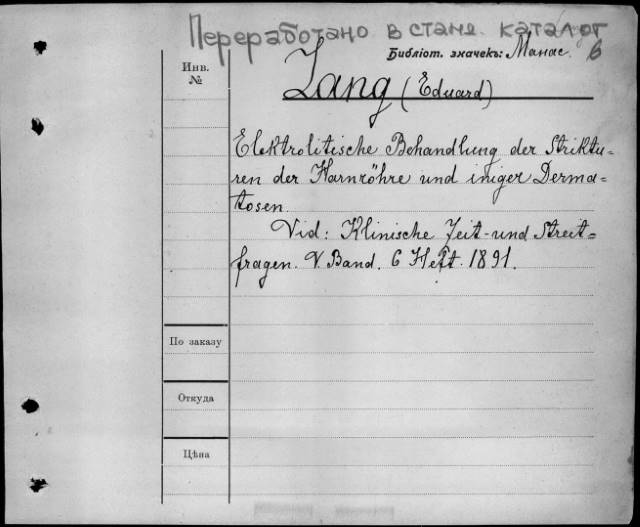 Переработано в станд. каталог
Библіот. значекъ: Манас. 6
Инв.
№
Lang (Eduard)
Elektrolitische Bohandlung der Striktu=
ren der Harnröhre und iniger Derma=
tosen.
Vid: Klinische Zeit- und Streit=
fragen. V. Band. 6 Heft. 1891.
По заказу
Откуда
Цѣна